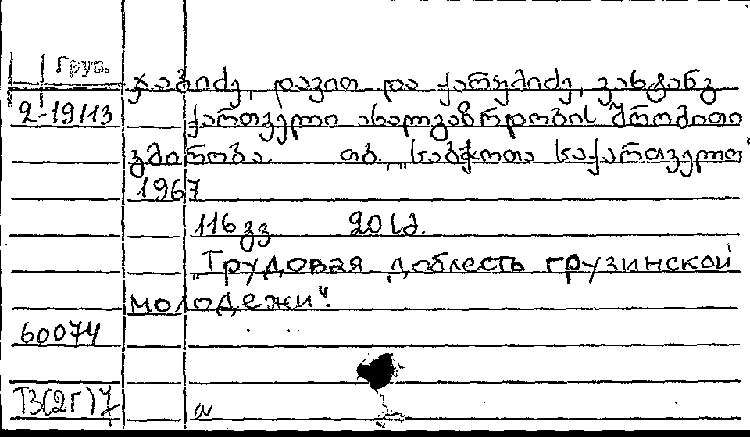 Груз.
ჯაბიძე, დავით და ქარუმიძე, ვახტანგ
2-19113
ქართველი ახალგაზრდობის შრომითი
გმირობა. თბ., "საბჭოთა საქართველო"
1967
116 გვ 20 სმ.
"Трудовая доблесть грузинской
молодежи".
60074
Т3(2Г)7